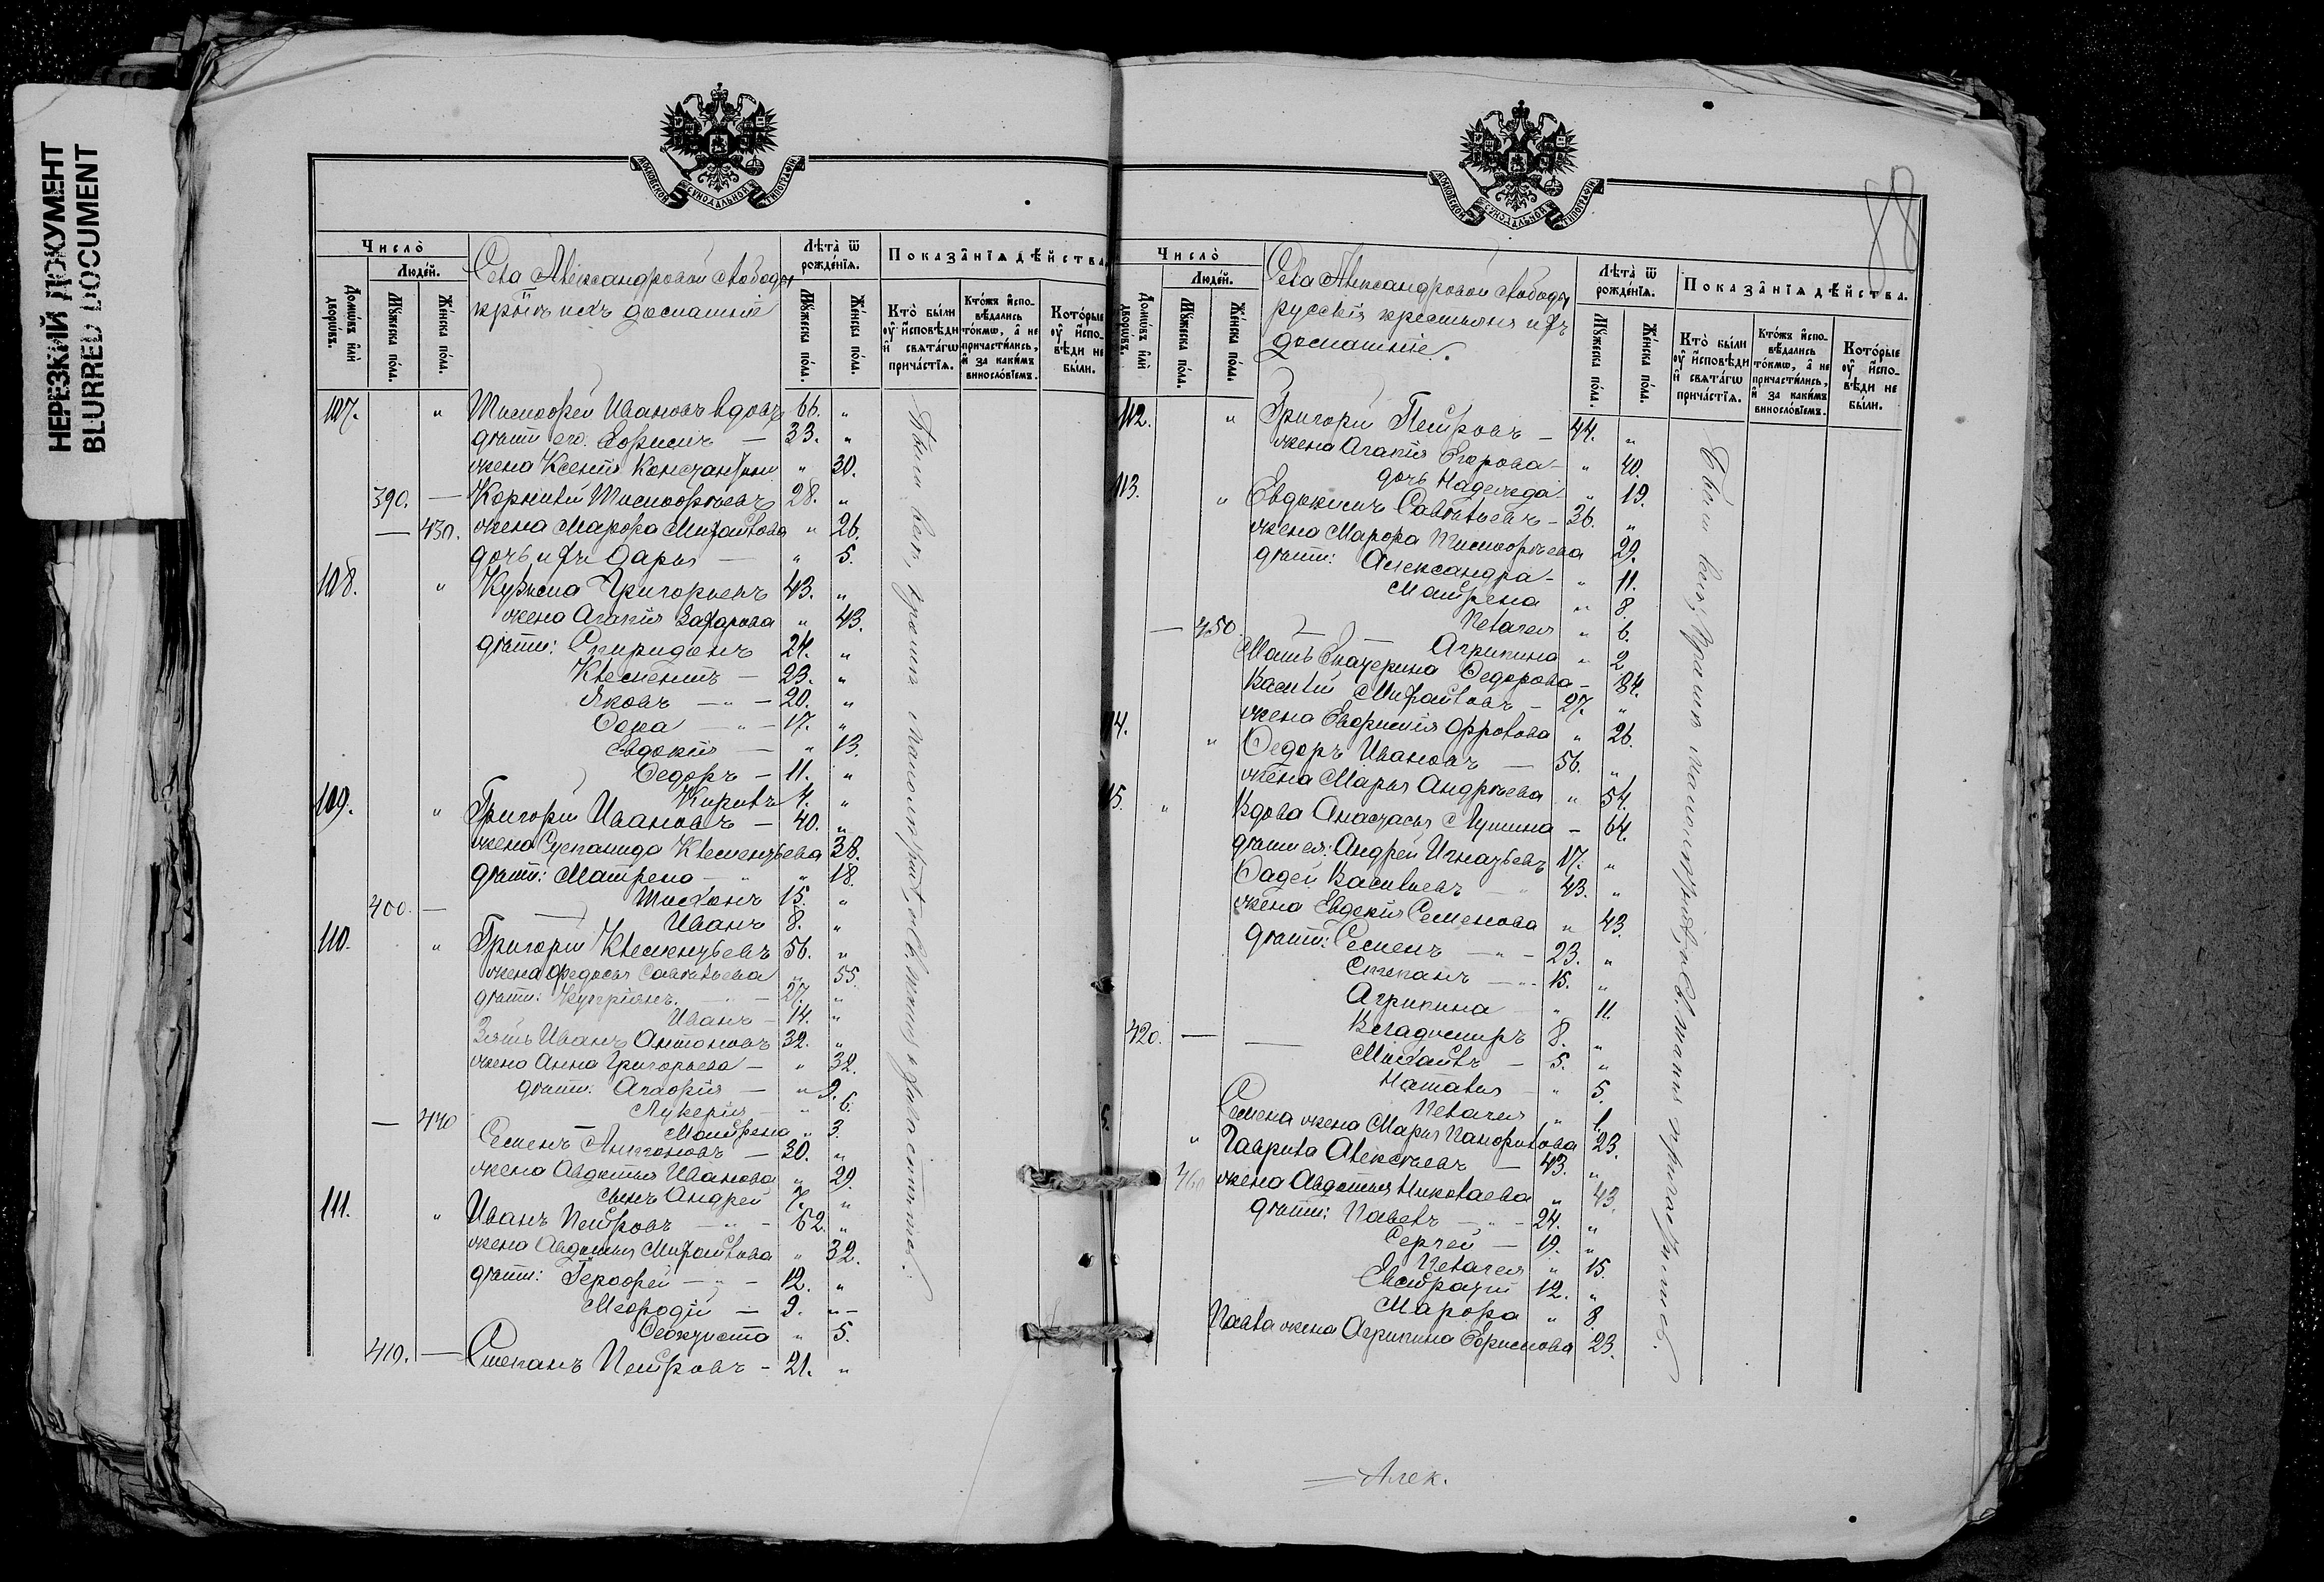 НЕРЕЗКИЙ ДОКУМЕНТ
BLURRED DOCUMENT
МОСКОВСКОЙ СѴНОДАЛЬНОЙ ТѴПОГРАФІИ
Число̀
Людей.
Домѡвъ или дворѡвъ.
Мꙋжеска пола.
Женска пола.
Села Александровой Слободы
домашніе
Лѣта ѿ рожденїѧ.
Мꙋжеска пола.
Женска пола.
Показанїѧ дѣйства
Кто были оу исповѣди и свѧтагѡ причастїѧ.
Ктожъ исповѣдались токмѡ, а не причастились, и за какимъ винословїемъ.
Которые оу исповѣди не были.
107. " Тимофей Ивановъ вдовъ 66. "
дѣти его: Ефримъ — 33. "
жена Ксенія Константин " 30.
390. — Корнилій Тимофѣевъ 28. "
— 430. жена Марфа Михайлова " 26.
дочь ихъ Дарья — " 5.
108. " Кузьма Григорьевъ 43. "
жена Агапія Захарова " 43.
дѣти: Спиридонъ 24. "
Клементъ — 23. "
Яковъ — " — 20. "
Фома — " — 17. "
Евдокія — " 13.
Федоръ — 11. "
Кирилъ 4. "
109. " Григорій Ивановъ — 40. "
жена Степанида Клементьева 38.
дѣти: Матрена — " " 18.
Тихонъ 15. "
400. — — Иванъ 8. "
110. " Григорій Клементьевъ 56. "
жена Федосья Савельева " 55.
дѣти: Купріянъ — " — 27. "
Иванъ — 14. "
Зять Иванъ Антоновъ 32. "
жена Анна Григорьева — " 32.
дѣти: Агафія — " 9.
Лукерія — " 6.
— 440 Матрена " 3.
Семенъ Антоновъ — 30. "
жена Авдотья Иванова " 29.
сынъ Андрей 7. "
111. " Иванъ Петровъ — " — 62. "
жена Авдотья Михайлова " 32.
дѣти: Герофей — " — 12. "
Мефодій — 9. " —
Феоктиста " 5.
410. — Степанъ Петровъ — 21. "
МОСКОВСКОЙ СѴНОДАЛЬНОЙ ТѴПОГРАФІИ
88
Число̀
Людей.
Домѡвъ или дворѡвъ.
Мꙋжеска пола.
Женска пола.
Села Александровой Слободы
русскія крестьяня ихъ
домашніе.
Лѣта ѿ рожденїѧ.
Мꙋжеска пола.
Женска пола.
Показанїѧ дѣйства.
Кто были оу исповѣди и свѧтагѡ причастїѧ.
Ктожъ исповѣдались токмѡ, а не причастились, и за какимъ винословїемъ.
Которые оу исповѣди не были.
112. " Григорій Петровъ — 44. "
жена Агапія Егорова — " 40.
дочь Надежда " 19.
113. " Евдокимъ Савельевъ — 36. "
жена Марфа Тимофѣева 29.
дѣти: Александра — " 11.
Матрена " 8.
Пелагея " 6.
— 450. — — Агрипина " 2
Мать Екатерина Федорова — 84.
Василій Михайловъ — 27. "
жена Евфимія Фролова " 26.
114. " Федоръ Ивановъ — 56. "
жена Марья Андрѣева " 54.
115. " Вдова Анастасья Лушина — 64.
дѣти ея: Андрей Игнатьевъ 17. "
Фадей Васильевъ — " 43. "
жена Евдокія Семенова " 43.
дѣти: Семенъ — " — 23. "
Степанъ — " 15. "
Агрипина " 11.
420. — — Владимиръ 8. "
Михаилъ — 5. "
Наталья — " 5.
Пелагея " 1.
Семена жена Марія Панфилова 23.
" Гаврила Алексѣевъ — 43. "
460 жена Авдотья Николаева " 43.
дѣти: Павелъ — " — 24. "
Сергей — 19. "
Пелагея " 15.
Евстратій 12. "
Марфа " 8.
Павла жена Агрипина Ефимова 23.
Алек.